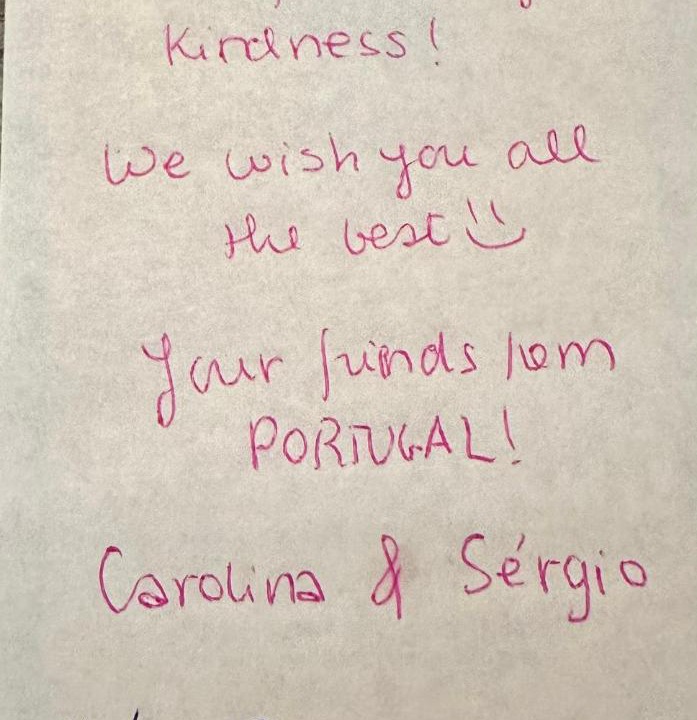 kindness!
We wish you all
the best :)
Your friends from
PORTUGAL!
Carolina & Sérgio